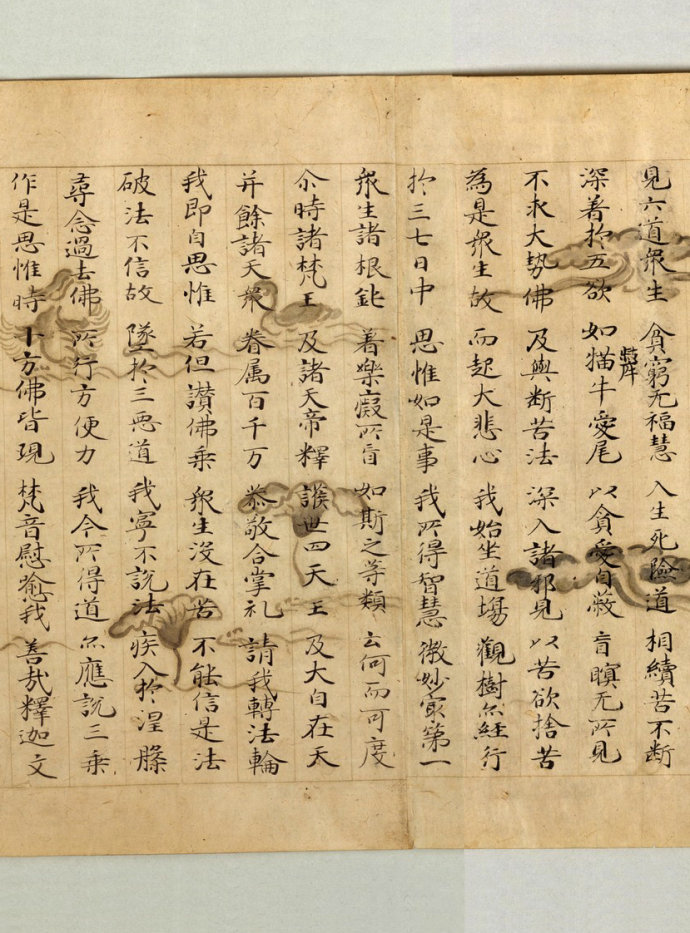 見六道衆生 貧窮无福慧 入生死險道 相續苦不断
深着於五欲 如猫牛愛尾 以貪愛自蔽 盲瞑无所見
不求大勢佛 及與断苦法 深入諸邪見 以苦欲捨苦
為是衆生故 而起大悲心 我始坐道場 觀樹亦経行
於三七日中 思惟如是事 我所得智慧 微妙冣第一
衆生諸根鈍 着樂癡所盲 如斯之等類 云何而可度
尒時諸梵王 及諸天帝釋 護世四天王 及大自在天
并餘諸天衆 眷属百千万 恭敬合掌礼 請我轉法輪
我即自思惟 若但讃佛乗 衆生没在苦 不能信是法
破法不信故 墜於三悪道 我寧不説法 疾入於涅槃
尋念過去佛 所行方便力 我今所得道 亦應説三乗
作是思惟時 十方佛皆現 梵音慰喩我 善哉釋迦文